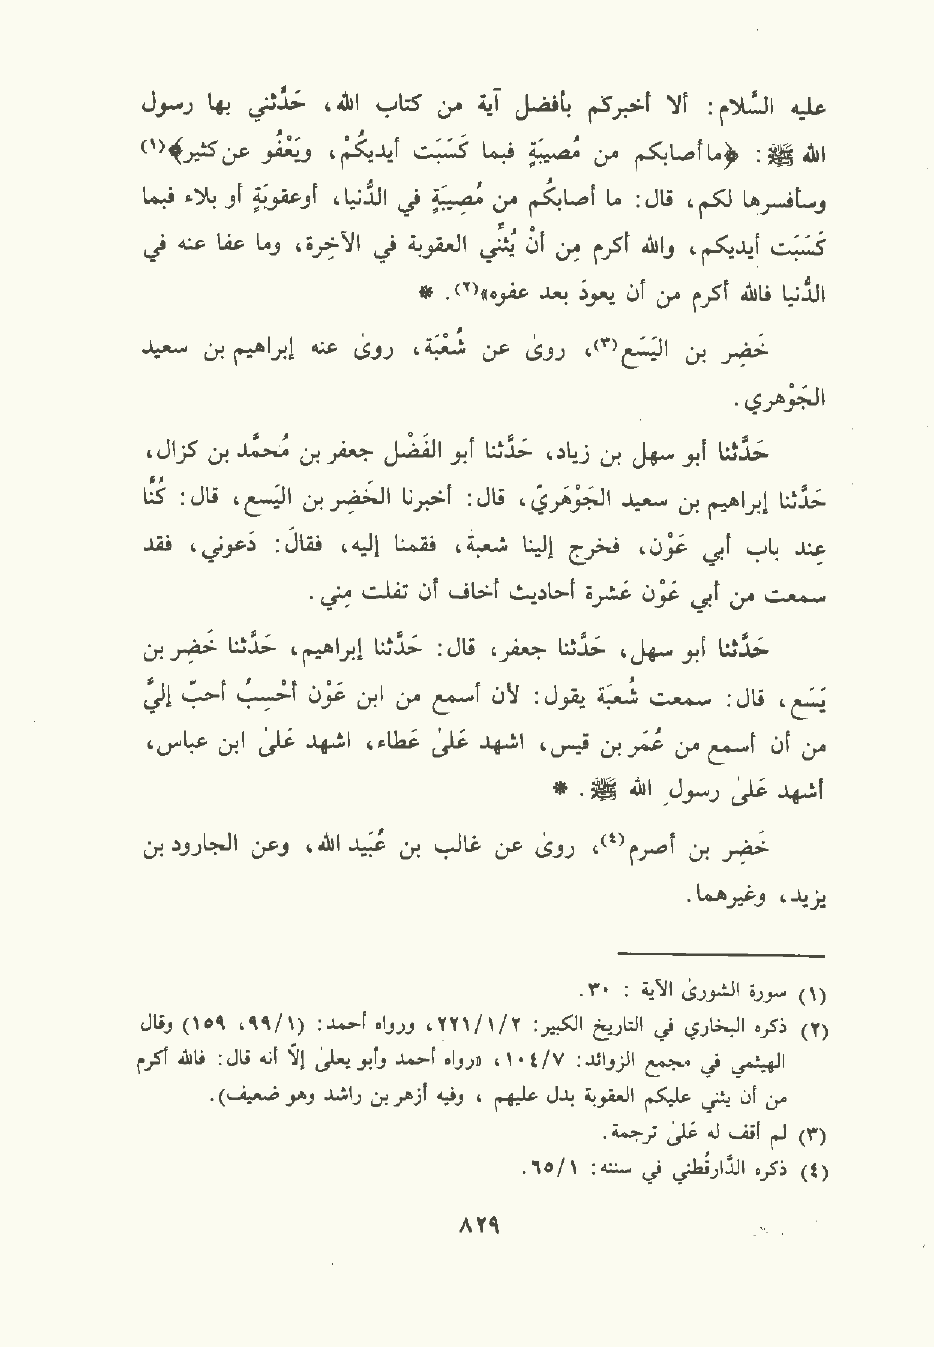 عليه السَّلام: ألا أخبركم بأفضل آية من كتاب الله، حَدَّثني بها رسول
الله ﷺ: ﴿ما أصابكم من مُصيبَةٍ فبما كَسَبَت أيديكُمْ، ويَعْفُو عن كثير﴾(١)
وسأفسرها لكم، قال: ما أصابكُم من مُصيبَةٍ في الدُّنيا، أوعقوبَةٍ أو بلاء فبما
كَسَبَت أيديكم، والله أكرم مِن أنْ يُثَنِّي العقوبة في الآخِرة، وما عفا عنه في
الدُّنيا فالله أكرم من أن يعودَ بعد عفوه»(٢). *
خَضِر بن اليَسَع(٣)، روىٰ عن شُعْبَة، روىٰ عنه إبراهيم بن سعيد
الجَوْهري.
حَدَّثنا أبو سهل بن زياد، حَدَّثنا أبو الفَضْل جعفر بن مُحمَّد بن كزال،
حَدَّثنا إبراهيم بن سعيد الجَوْهَريّ، قال: أخبرنا الخَضِر بن اليَسع، قال: كُنَّا
عِند باب أبي عَوْن، فخرج إلينا شعبة، فقمنا إليه، فقالَ: دَعوني، فقد
سمعت من أبي عَوْن عَشرة أحاديث أخاف أن تفلت مِني.
حَدَّثنا أبو سهل، حَدَّثنا جعفر، قال: حَدَّثنا إبراهيم، حَدَّثنا خَضِر بن
يَسَع، قال: سمعت شُعبَة يقول: لأن أسمع من ابن عَوْن أحْسِبُ أحبّ إليَّ
من أن أسمع من عُمَر بن قيس، اشهد عَلىٰ عَطاء، اشهد عَلىٰ ابن عباس،
أشهد عَلىٰ رسولِ الله ﷺ. *
خَضِر بن أصرم(٤)، روىٰ عن غالب بن عُبَيد الله، وعن الجارود بن
يزيد، وغيرهما.
(١) سورة الشورىٰ الآية : ٣٠.
(٢) ذكره البخاري في التاريخ الكبير: ٢/١/٢٢١، ورواه أحمد: (١/٩٩، ١٥٩) وقال
الهيثمي في مجمع الزوائد: ٧/١٠٤، «رواه أحمد وأبو يعلىٰ إلاَّ أنه قال: فالله أكرم
من أن يثني عليكم العقوبة بدل عليهم ، وفيه أزهر بن راشد وهو ضعيف).
(٣) لم أقف له عَلىٰ ترجمة.
(٤) ذكره الدَّارقُطني في سننه: ١/٦٥.
٨٢٩